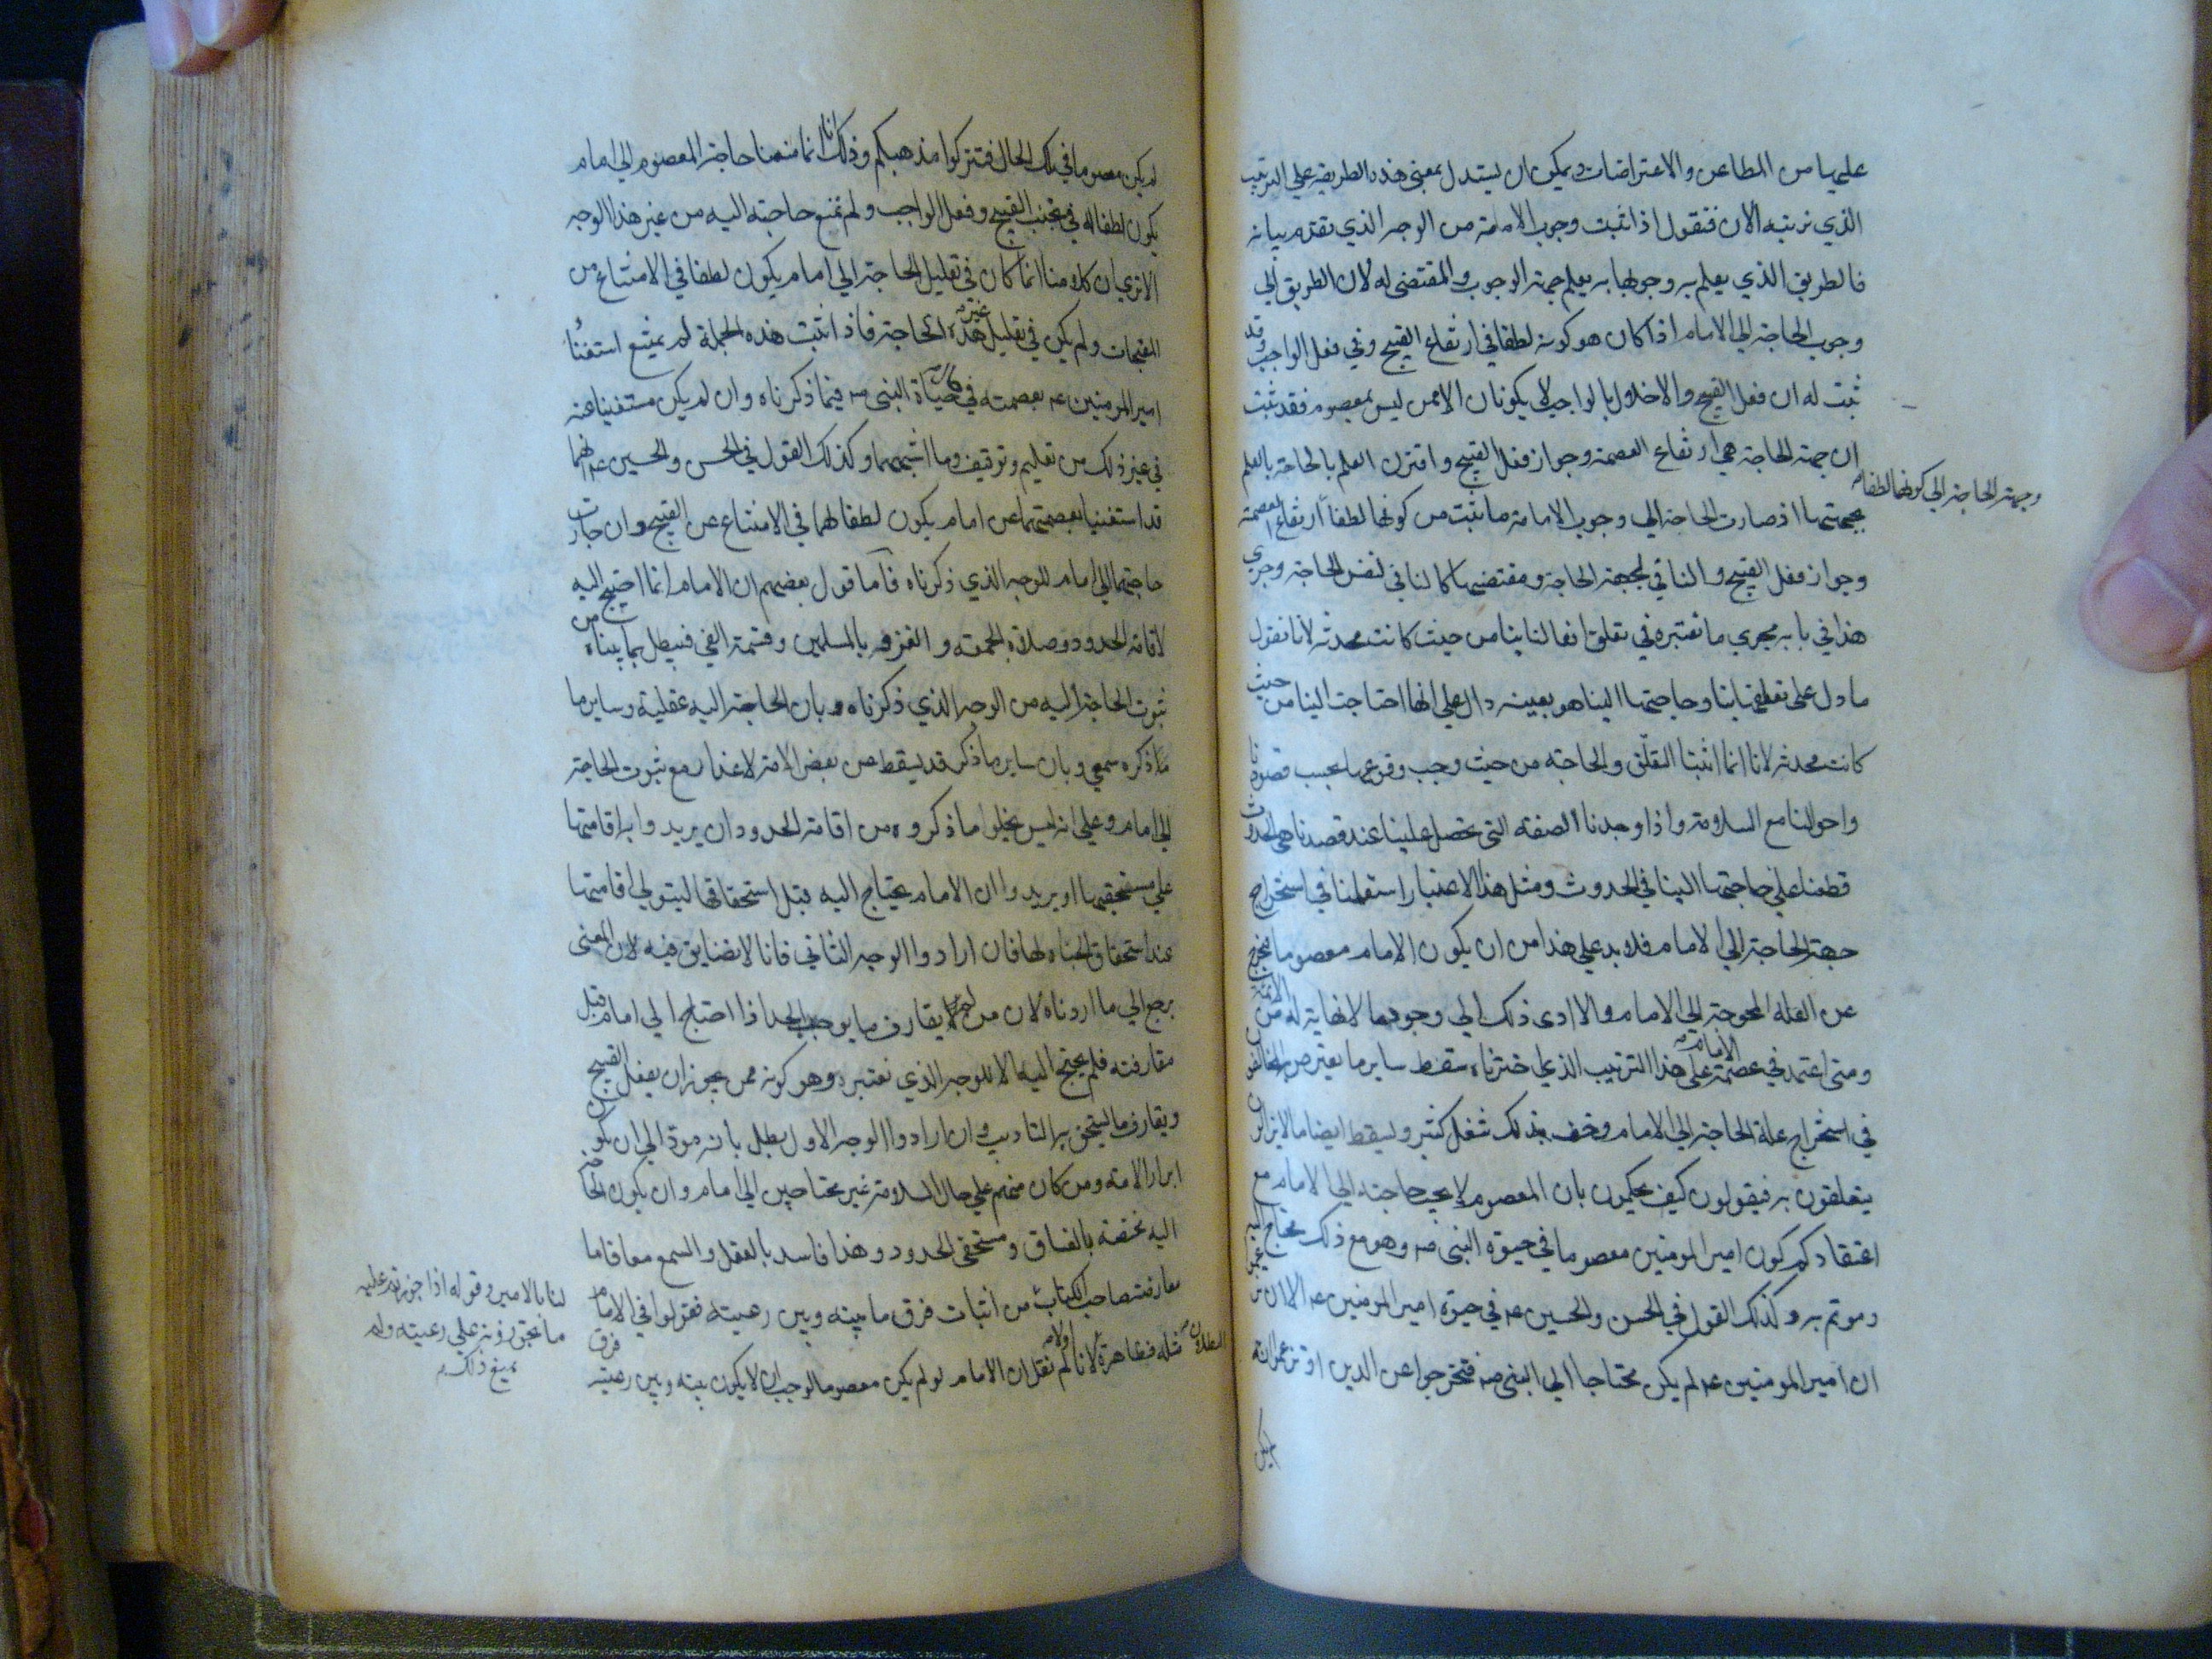 عليها من المطاعن والاعتراضات ويمكن ان يستدل بمعنى هذه الطريقة على الترتيب
الذي نرتبه الان فنقول اذا ثبت وجوب الامامة من الوجه الذي تقدم بيانه
فالطريق الذي يعلم به وجوبها به يعلم جهة الوجوب والمقتضى له لان الطريق الى
وجوب الحاجة الى الامام اذا كان هو كونه لطفا في ارتفاع القبيح وفي فعل الواجب وقد
ثبت له ان فعل القبيح والاخلال بالواجب لا يكونان الا ممن ليس بمعصوم فقد ثبت
ان جهة الحاجة هي ارتفاع العصمة وجواز فعل القبيح واقترن العلم بالحاجة بالعلم
وجهة الحاجة الى كونها لطفا
بجهتها اذ صارت الحاجة الى وجوب الامامة ما ثبت من كونها لطفا ارتفاع العصمة
وجواز فعل القبيح والنافي لجهة الحاجة ومقتضيها كالنافي لنفس الحاجة وجرى
هذا في بابه مجرى ما نعتبره في تعلق افعالنا بنا من حيث كانت محدثة لانا نقول
ما دل على تعلقها بنا وحاجتها الينا هو بعينه دال على انها احتاجت الينا من حيث
كانت محدثة لانا انما اثبتنا التعلق والحاجة من حيث وجب وقوعها بحسب قصودنا
واحوالنا مع السلامة واذا وجدنا الصفة التي تحصل علينا عند قصدنا هي الحدوث
قطعنا على حاجتها الينا في الحدوث ومثل هذا الاعتبار استعملنا في استخراج
جهة الحاجة الى الامام فلا بد على هذا من ان يكون الامام معصوما ليخرج
عن العلة المحوجة الى الامام والا ادى ذلك الى وجود ما لا نهاية له من الائمة
ومتى اعتمد في عصمة الامام على هذا الترتيب الذي اخترناه سقط ساير ما يعترض به المخالفون
في استخراج علة الحاجة الى الامام وخف بذلك شغل كثير ويسقط ايضا ما لا يزالون
يتعلقون به فيقولون كيف تحكمون بان المعصوم لا يجب حاجته الى الامام مع
اعتقادكم كون امير المومنين معصوما في حيوة النبى ص وهو مع ذلك محتاج اليه
ومؤتم به وكذلك القول في الحسن والحسين ع في حيوة امير المومنين ع الا ان تزعموا
ان امير المومنين ع لم يكن محتاجا الى النبى ص فتخرجوا عن الدين او تزعموا انه
لم يكن
لم يكن معصوما في تلك الحال فتتركوا مذهبكم وذلك انا انما منعنا حاجة المعصوم الى امام
يكون لطفا له في تجنب القبيح وفعل الواجب ولم نمنع حاجته اليه من غير هذا الوجه
الا ترى ان كلامنا انما كان في تعليل الحاجة الى امام يكون لطفا في الامتناع من
المقبحات ولم يكن في تعليل غير هذه الحاجة فاذا ثبت هذه الجملة لم يمتنع استغناء
امير المومنين ع بعصمته في حياة النبى ص فيما ذكرناه وان لم يكن مستغنيا عنه
في غير ذلك من تعليم وتوقيف وما اشبههما وكذلك القول في الحسن والحسين ع انهما
قد استغنيا بعصمتهما عن امام يكون لطفا لهما في الامتناع عن القبيح وان جازت
حاجتهما الى امام للوجه الذي ذكرناه فاما قول بعضهم ان الامام انما احتيج اليه
لاقامة الحدود وصلاة الجمعة والغزو بالمسلمين وقسمة الفي فيبطل بما بيناه من
ثبوت الحاجة اليه من الوجه الذي ذكرناه وبان الحاجة اليه عقلية وساير ما
ذكره سمعي وبان ساير ما ذكر قد يسقط عن بعض الامة لاعذار مع ثبوت الحاجة
الى امام وعلى انه ليس يخلوا ما ذكروه من اقامة الحدود ان يريدوا به اقامتها
على مستحقيها او يريدوا ان الامام يحتاج اليه قبل استحقاقها ليتولى اقامتها
عند استحقاق الجناه لها فان ارادوا الوجه الثاني فانا لا نضايق فيه لان المعنى
يرجع الى ما اردناه لان من لم يقارف ما يوجب الحد اذا احتاج الى امام قبل
مقارفته فلم يحتج اليه الا للوجه الذي نعتبره وهو كونه ممن يجوز ان يفعل القبيح
ويقارف ما يستحق به التاديب وان ارادوا الوجه الاول بطل بانه مؤد الى ان يكون
ابرار الامة ومن كان منهم على حال السلامة غير محتاجين الى امام وان يكون الحاجة
اليه مختصة بالفساق ومستحقى الحدود وهذا فاسد بالعقل والسمع معا فاما
معارضة صاحب الكتاب من اثبات فرق ما بينه وبين رعيته فقولوا في الامام
لنا بالامير وقوله اذا جوزتم عليه
ما يجوز على رعيته ولم
يمنع ذلك
مثله فظاهرة البطلان لانا اولا لم نقل ان الامام لو لم يكن معصوما لوجب ان لا يكون بينه وبين رعيته فرق